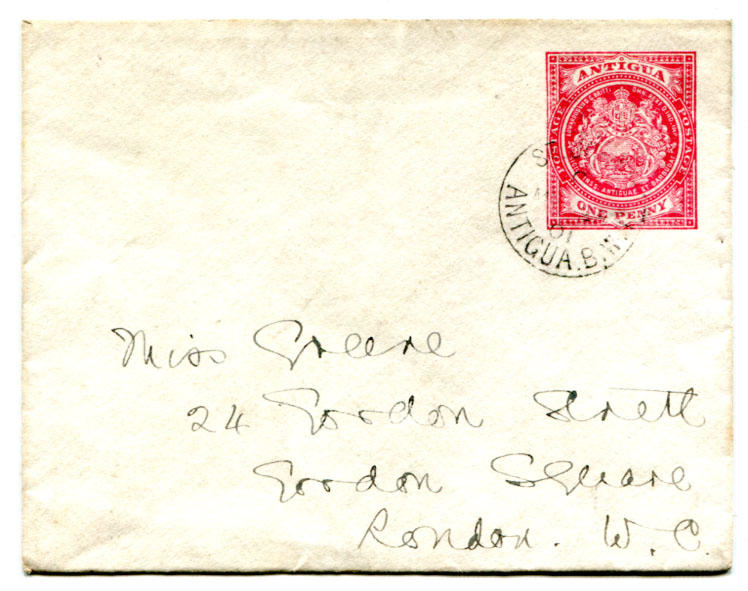 ANTIGUA
POSTAGE
POSTAGE
ONE PENNY
ANTIGUA.B.W.I
01
Miss Greene
24 Gordon Street
Gordon Square
London. W.C.